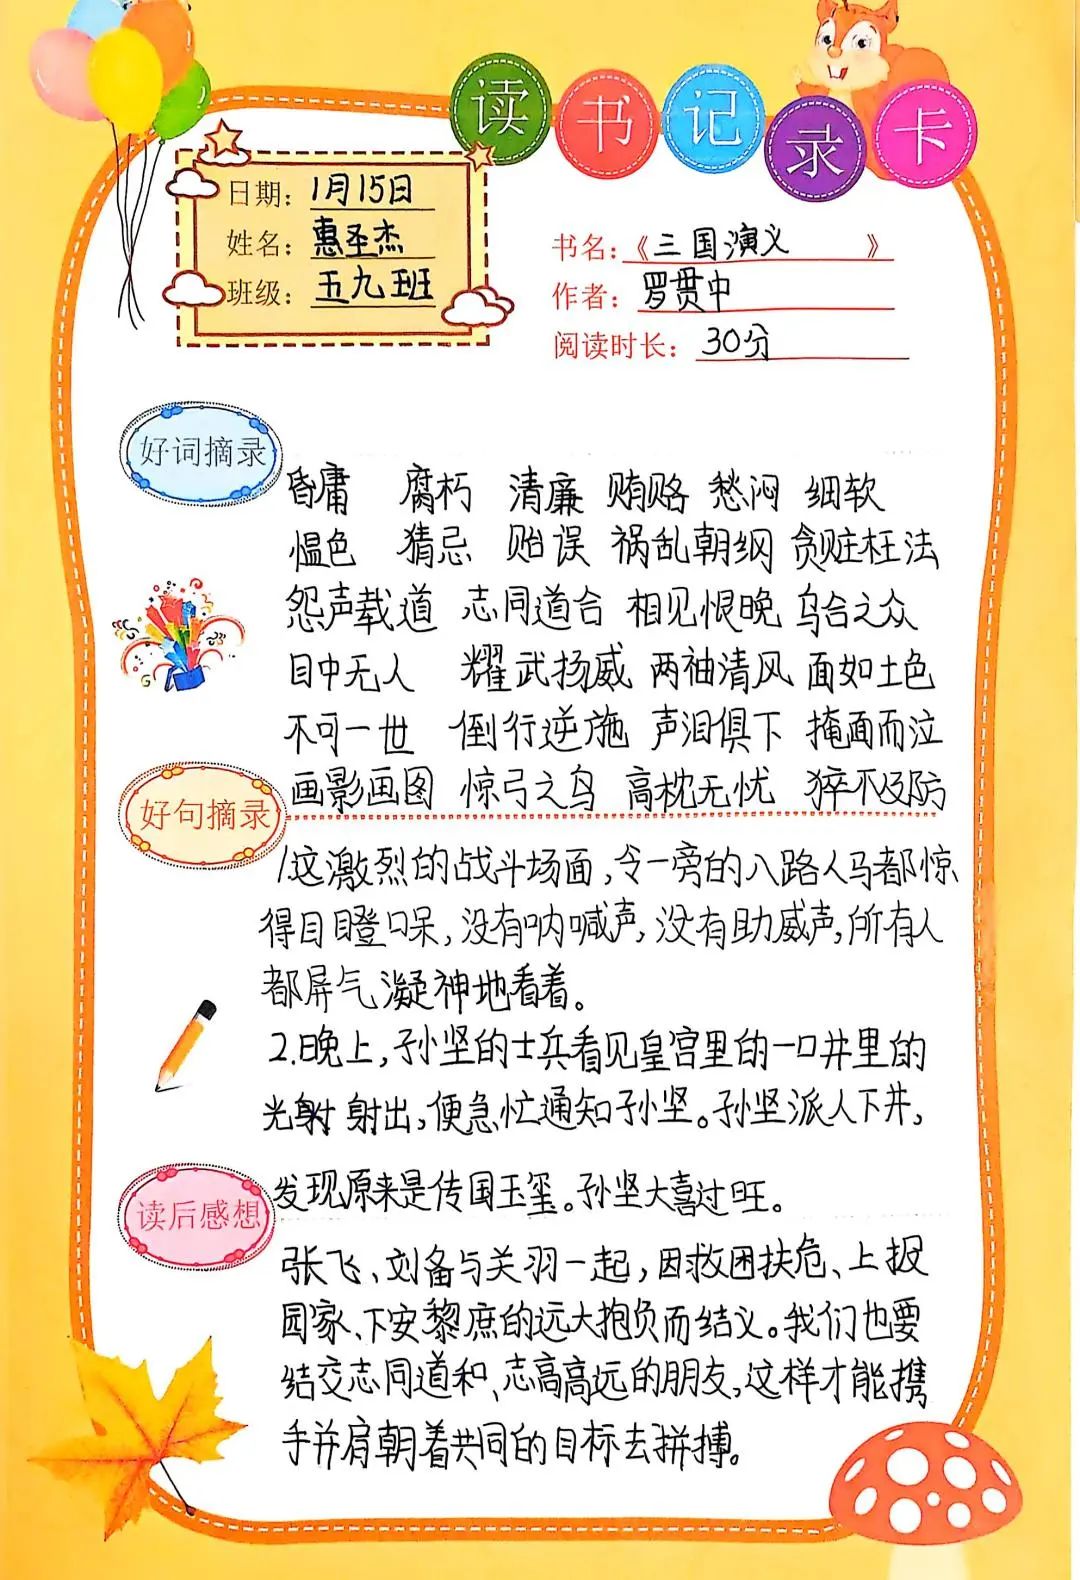 读书记录卡
日期: 1月15日
姓名: 惠圣杰
班级: 五九班
书名:《三国演义》
作者: 罗贯中
阅读时长: 30分
好词摘录
昏庸 腐朽 清廉 贿赂 愁闷 细软
愠色 猜忌 贻误 祸乱朝纲 贪赃枉法
怨声载道 志同道合 相见恨晚 乌合之众
目中无人 耀武扬威 两袖清风 面如土色
不可一世 倒行逆施 声泪俱下 掩面而泣
画影画图 惊弓之鸟 高枕无忧 猝不及防
好句摘录
1这激烈的战斗场面,令一旁的八路人马都惊
得目瞪口呆,没有呐喊声,没有助威声,所有人
都屏气凝神地看着。
2.晚上,孙坚的士兵看见皇宫里的一口井里的
光射射出,便急忙通知孙坚。孙坚派人下井,
发现原来是传国玉玺。孙坚大喜过旺。
读后感想
张飞、刘备与关羽一起,因救困扶危、上报
国家、下安黎庶的远大抱负而结义。我们也要
结交志同道和、志高高远的朋友,这样才能携
手并肩朝着共同的目标去拼搏。